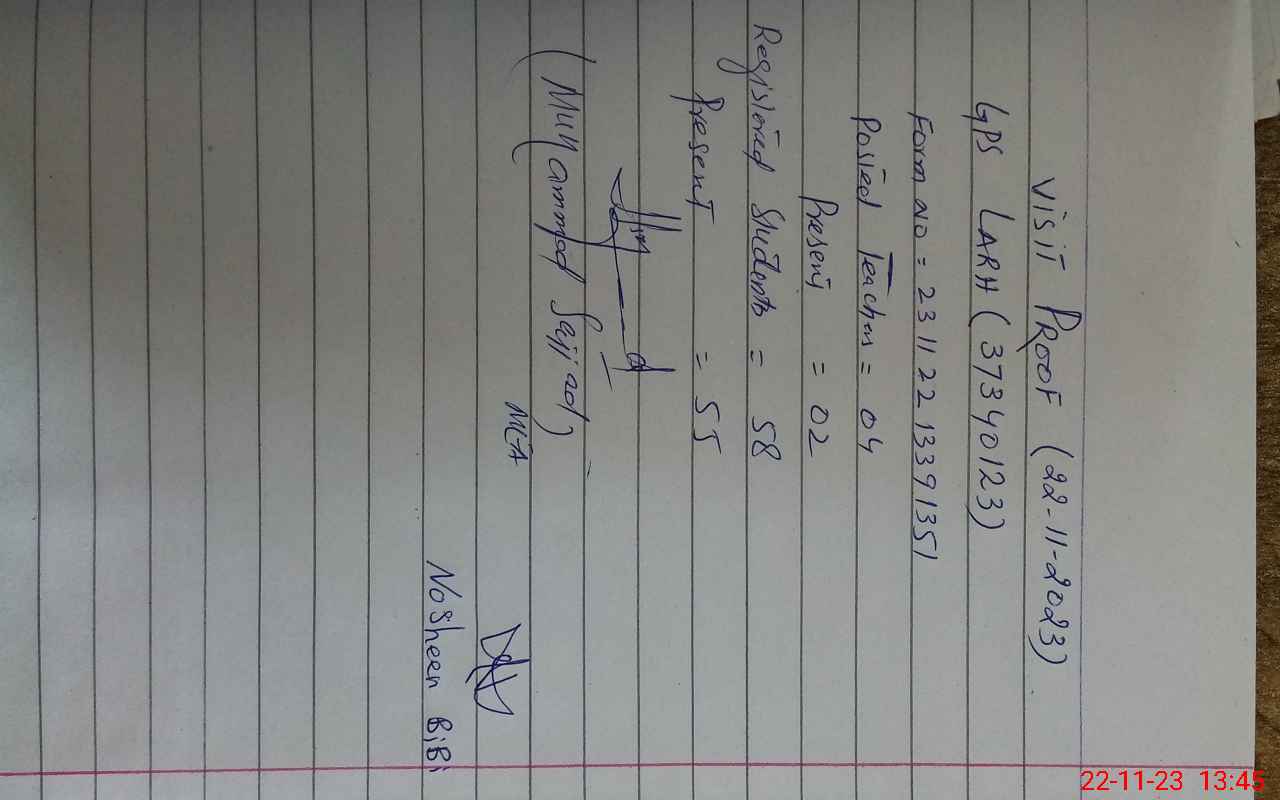 VISIT PROOF (22-11-2023)
GPS LARH (37340123)
Form No = 23112213391351
Posted Teachers = 04
Present = 02
Registered Students = 58
Present = 55
(Muhammad Sajjad)
MEA
Nosheen BiBi
22-11-23 13:45